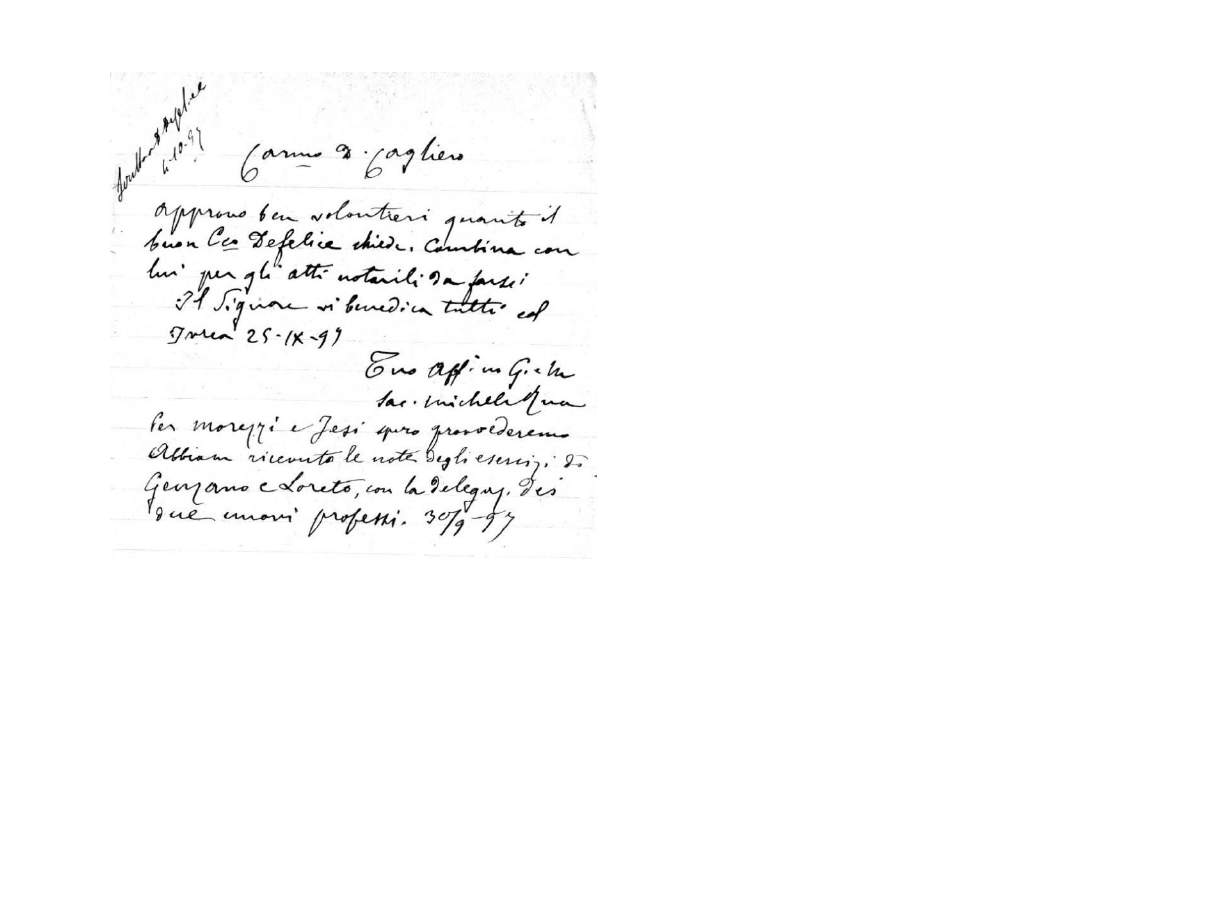 Scritto a D Defelice
4-10-97
Carmo D. Cagliero
Approvo ben volontieri quanto il
buon Cco Defelice chiede. Combina con
lui per gli atti notarili da farsi
Il Signore vi benedica tutti ed
Ivrea 25-IX-97
Tuo Aff.mo in G. e M.
Sac. Michele Rua
Per Morezzi e Jesi spero provvederemo
Abbiam ricevuto le note degli esercizi di
Genzano e Loreto, con la delegaz. dei
due nuovi professi. 30/9-97